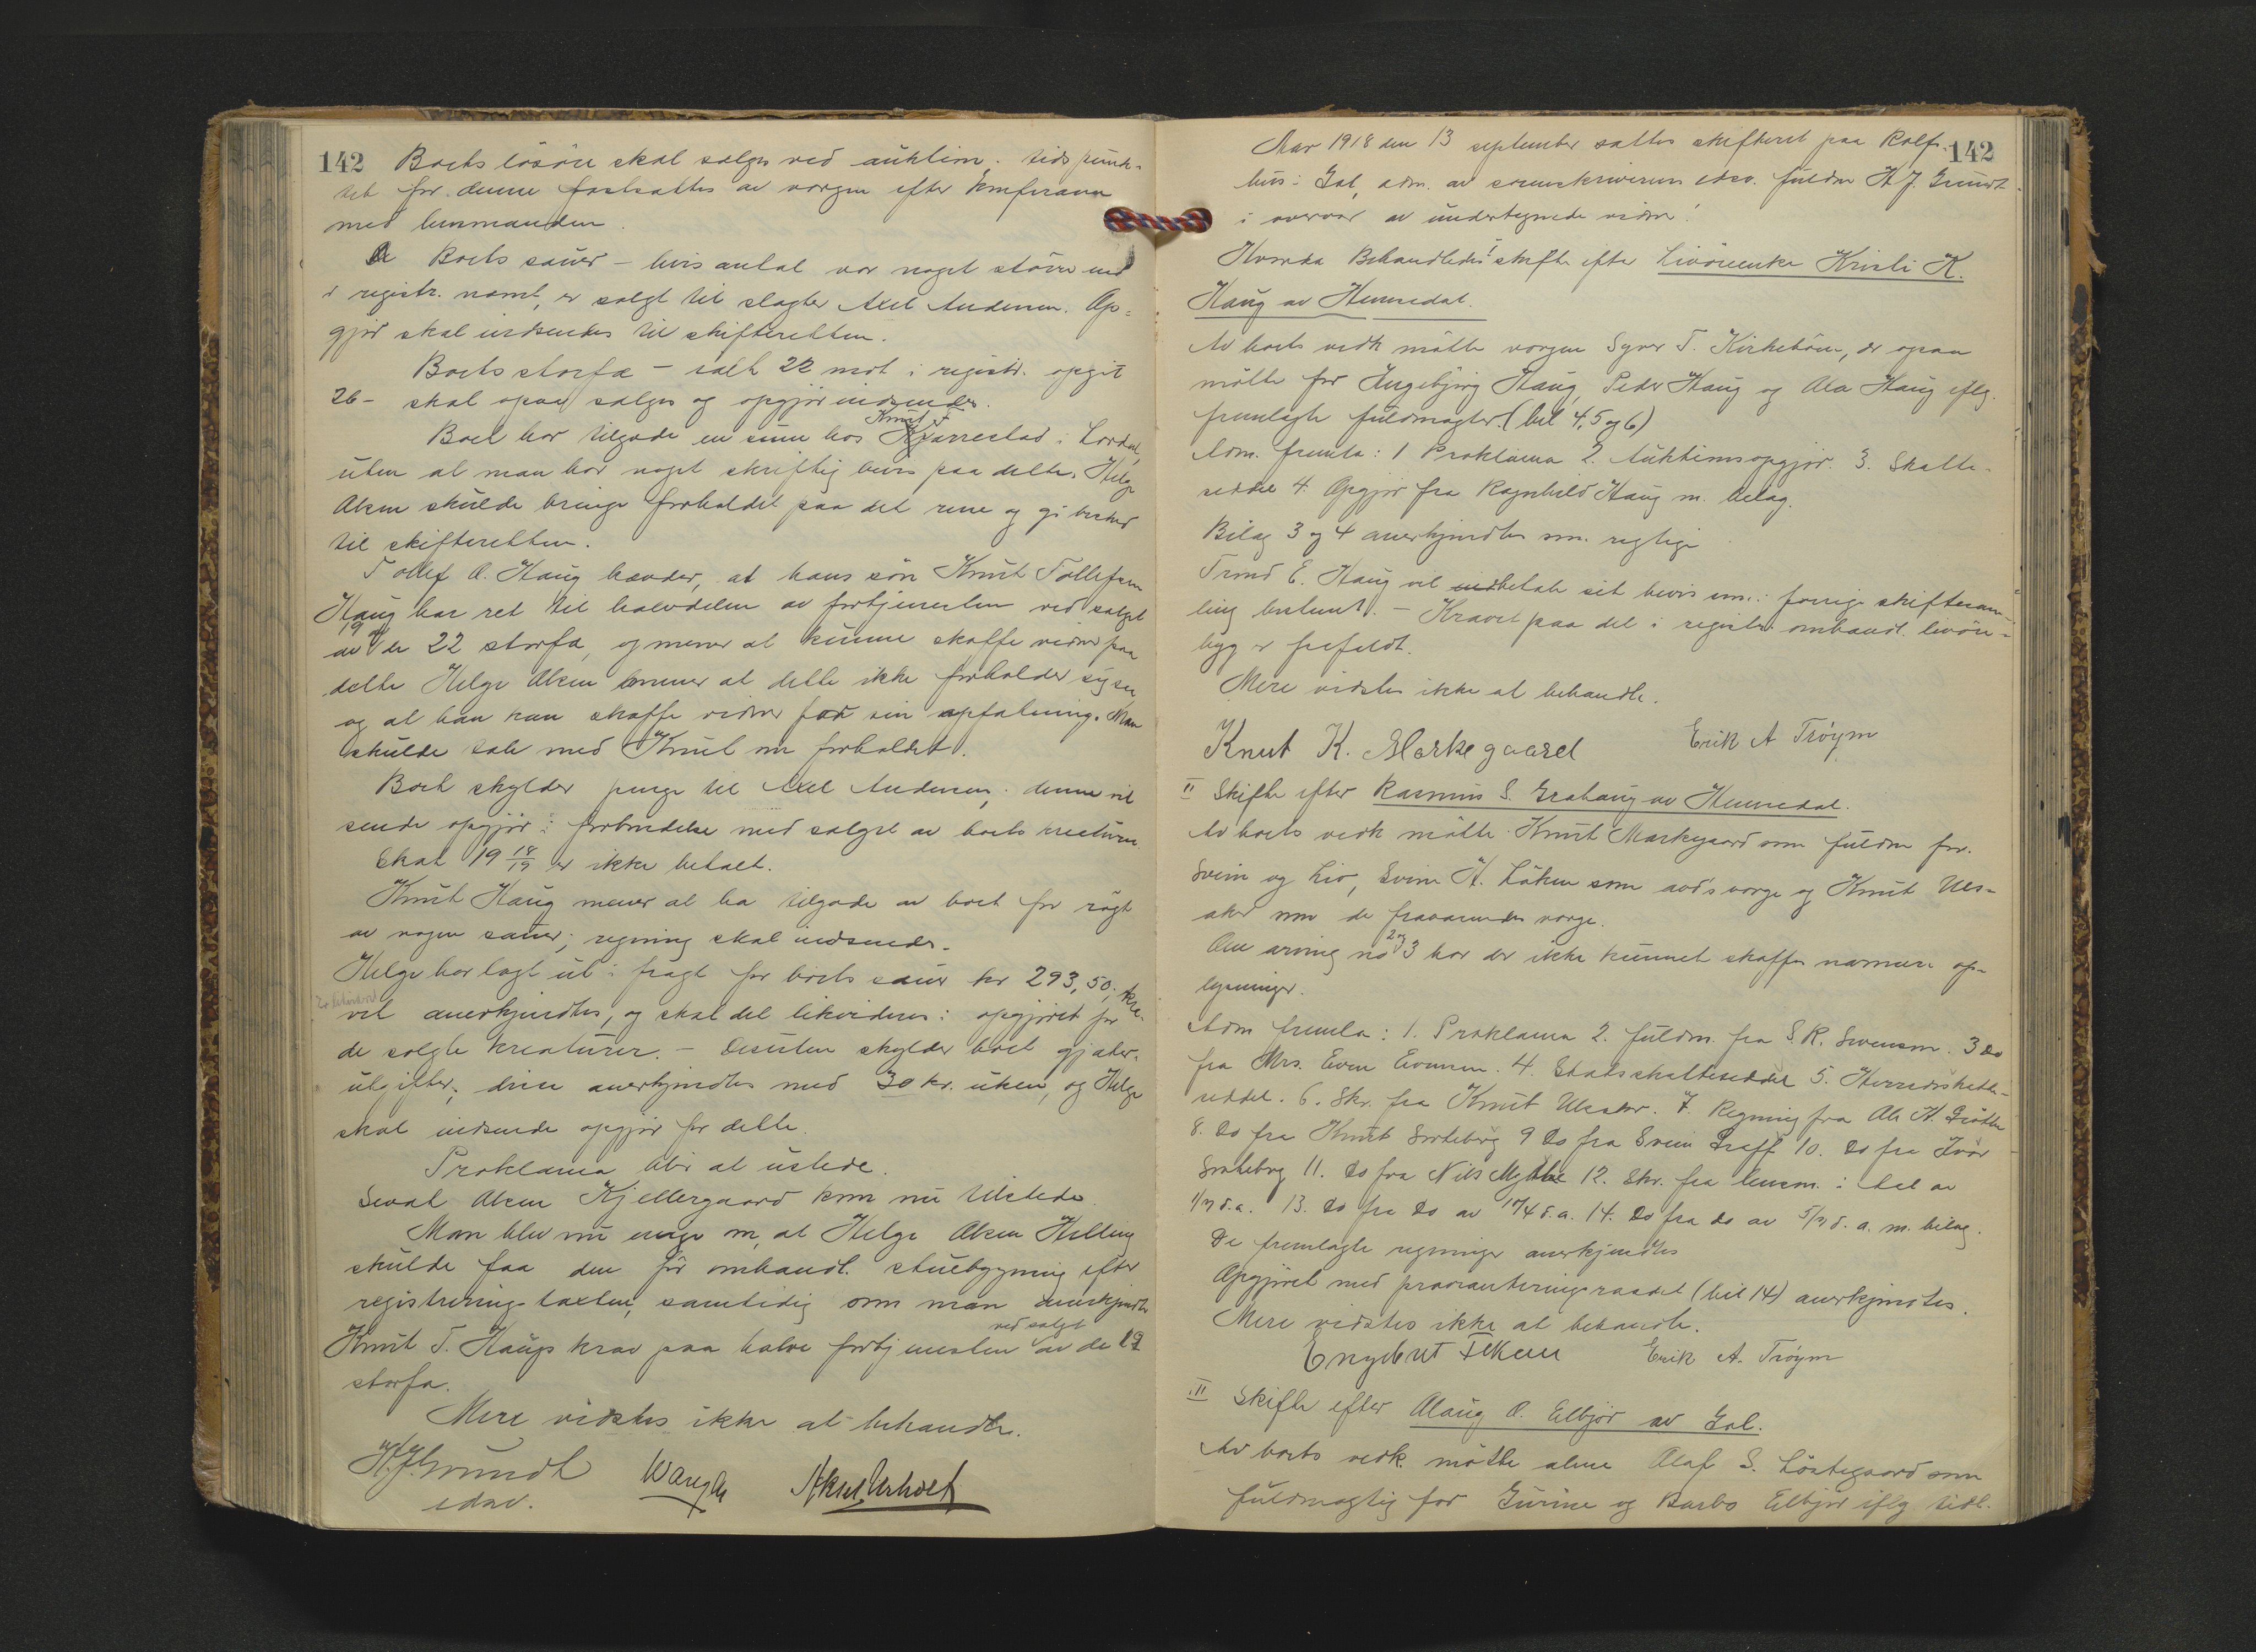 142 Boets lösöre skal sælges ved auktion. Tidspunk-
tet for denne fastsættes av vergen efter konferanse
med lensmanden.
Boets sauer – hvis antal var noget större end
i registr. nævnt, er solgt til slagter Axel Andersen. Op-
gjör skal indsendes til skifteretten.
Boets storfæ – ialt 22 mot i registr. opgit
26 – skal ogsaa sælges og opgjör indsendes.
Knut T.
Boet har tilgode en sum hos Kjærrestad i Lærdal,
uten at man har noget skriftlig bevis paa dette. Helge
Olsen skulde bringe forholdet paa det rene og gi besked
til skifteretten.
Tollef O. Haug hævder, at hans sön Knut Tollefsen
Haug har ret til halvdelen av fortjenesten ved salget
19 av
av de 22 storfæ, og mener at kunne skaffe vidner paa
dette. Helge Olsen mener at dette ikke forholder sig saa
og at han kan skaffe vidner for sin opfatning. Man
skulde tale med Knut om forholdet.
Boet skylder penge til Axel Andersen; denne vil
sende opgjör i forbindelse med salget av boets kreaturer.
Skat 19 18/19 er ikke betalt.
Knut Haug mener at ha tilgode av boet for rögt
av nogen sauer; regning skal indsendes.
Helge har lagt ut i fragt for boets sauer kr 293,50; kra-
vet anerkjendtes, og skal det likvideres i opgjöret for
de solgte kreaturer. – Desuten skylder boet gjæter-
utgifter; disse anerkjendtes med 30 kr. uken, og Helge
skal indsende opgjör for dette.
Proklama blir at utstede.
Sevat Olsen Kjellergaard kom nu tilstede.
Man blev nu enige om, at Helge Olsen Helling
skulde faa den för omhandl. stuebygning efter
registreringstaxten, samtidig som man anerkjendte
ved salget
Knut T. Haugs krav paa halve fortjenesten av de 19
storfæ.
Mere vidstes ikke at behandle.
H.J. Grundt
edsv.
Aar 1918 den 13 september sattes skifteret paa Rolfs- 142
hus i Gol, adm. av sorenskriverens edsv. fuldm H J. Grundt
i overvær av undertegnede vidner!
Hvorda Behandledes: I skifte efter Livöreenke Kristi K.
Haug av Hemsedal.
Av boets vedk mötte vergen Syver T. Kirkeböen, der ogsaa
mötte for Ingebjörg Haug, Peder Haug og Ola Haug iflg.
fremlagte fuldmagter. (bil 4, 5 og 6)
Adm. fremla: 1 Proklama 2. Auktionsopgjör. 3. Skatte-
seddel 4. Opgjör fra Ragnhild Haug m. bilag.
Bilag 3 og 4 anerkjendtes som rigtige
Trond E. Haug vil indbetale sit bevis som i forrige skiftesam-
ling bestemt. – Kravet paa det i registr. omhandl. livöre-
byg er frafaldt.
Mere vidstes ikke at behandle.
Knut K. Markegaard Erik A Tröym
II Skifte efter Rasmus S. Grahaug av Hemsedal.
Av boets vedk mötte Knut Markegaard som fuldm for
Svein og Liv, Svein H. Löken som avd's verge og Knut Uls-
aker som de fraværendes verge.
2 og
Om arving no 3 har der ikke kunnet skaffes nærmere op-
lysninger.
Adm fremla: 1. Proklama 2. fuldm. fra S. R. Swenson. 3 do
fra Mrs. Even Evensen. 4. Statsskatteseddel 5. Herredsskatte-
seddel. 6. Skr. fra Knut Ulsaker. 7. Regning fra Ole H. Gröthe
8. do fra Knut Snoteberg 9 do fra Svein Greff 10. do fra Ivar
Snoteberg 11. do fra Nils Mythe 12. Skr. fra lensm. i Aal av
1/7 d.a. 13. do fra do av 17/4 d.a. 14. do fra do av 5/7 d. a. m. bilag.
De fremlagte regninger anerkjendtes
Opgjöret med provianteringsraadet (bil 14) anerkjendtes.
Mere vidstes ikke at behandle.
Engebret Erik A. Tröym
II Skifte efter Olaug O. Eilbjör av Gol.
Av boets vedk. mötte alene Olaf S. Löstegaard som
fuldmægtig for Gurine og Barbo Eilbjör iflg tidl.